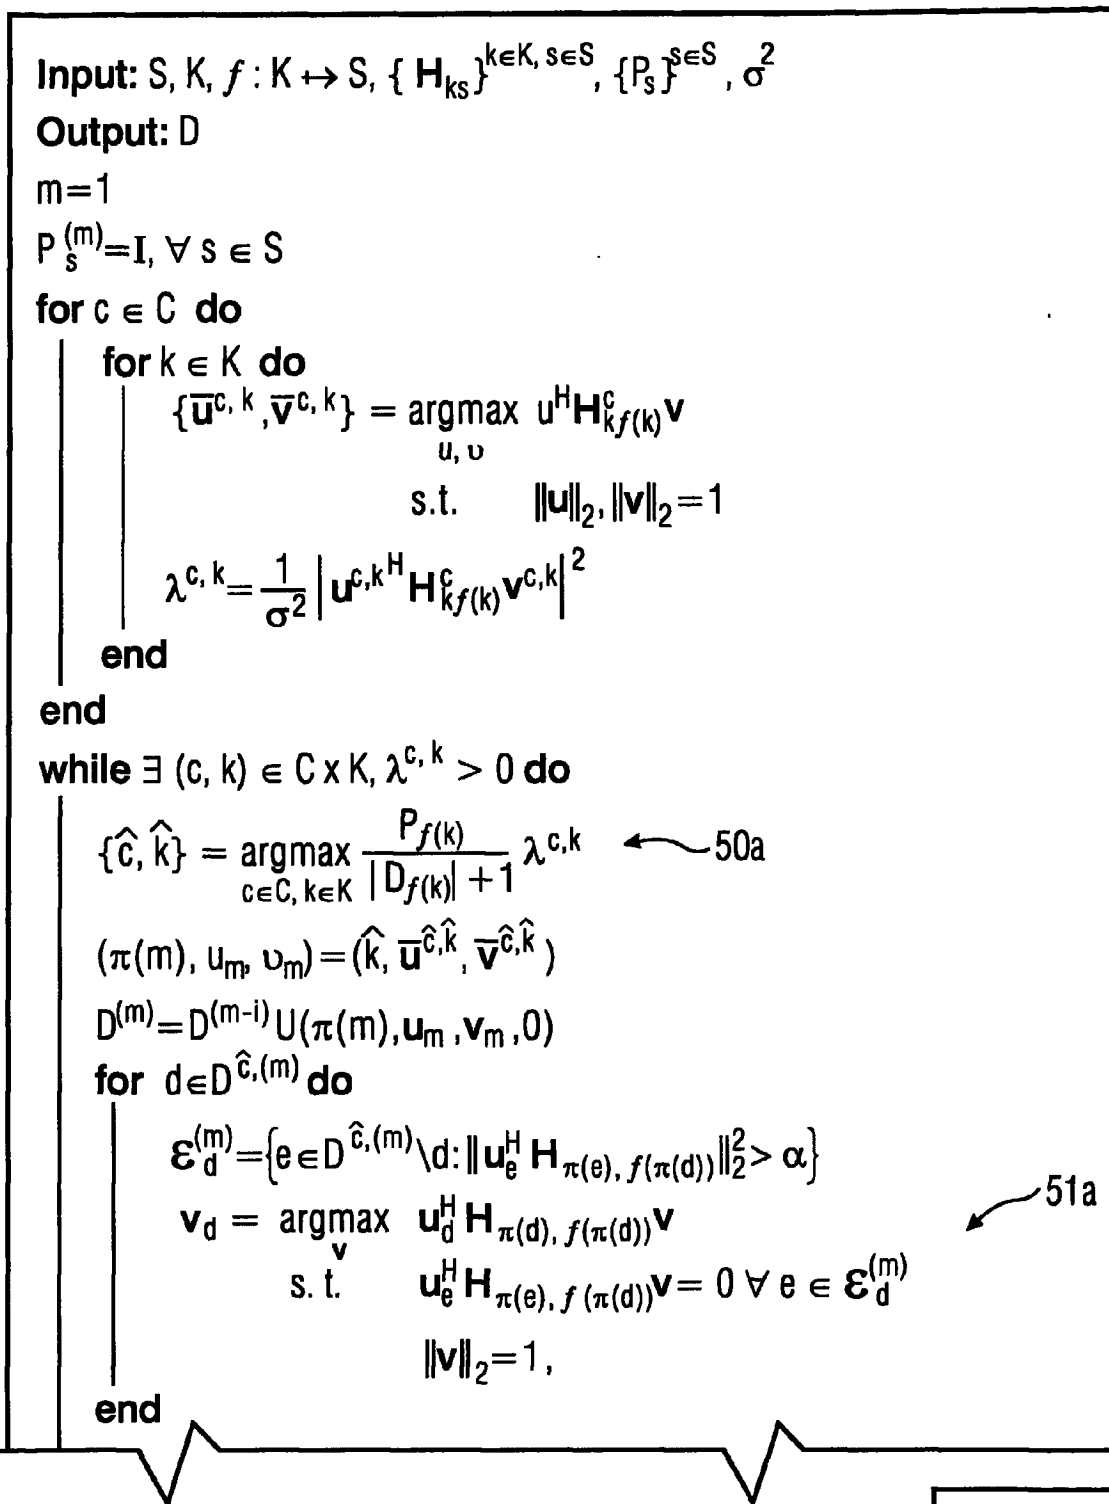 Input: S, K, f : K ↦ S, { H_ks }^{k∈K, s∈S}, {P_s}^{s∈S}, σ^2
Output: D
m=1
P_s^{(m)}=I, ∀ s ∈ S
for c ∈ C do
for k ∈ K do
{ū^{c, k}, v̄^{c, k}} = argmax_{u, υ} u^H H^c_{kf(k)} v
s.t. ‖u‖_2, ‖v‖_2=1
λ^{c, k}= 1/σ^2 | u^{c,k^H} H^c_{kf(k)} v^{c,k} |^2
end
end
while ∃ (c, k) ∈ C x K, λ^{c, k} > 0 do
{ĉ, k̂} = argmax_{c∈C, k∈K} P_{f(k)} / (|D_{f(k)}| +1) λ^{c,k} 50a
(π(m), u_m, υ_m)=(k̂, ū^{ĉ,k̂}, v̄^{ĉ,k̂})
D^{(m)}=D^{(m-i)} U(π(m),u_m ,v_m ,0)
for d∈D^{ĉ,(m)} do
ε_d^{(m)}={e∈D^{ĉ,(m)}\d:‖u_e^H H_{π(e), f(π(d))}‖_2^2> α}
v_d = argmax_v u_d^H H_{π(d), f(π(d))} v 51a
s. t. u_e^H H_{π(e), f (π(d))} v= 0 ∀ e ∈ ε_d^{(m)}
‖v‖_2=1,
end